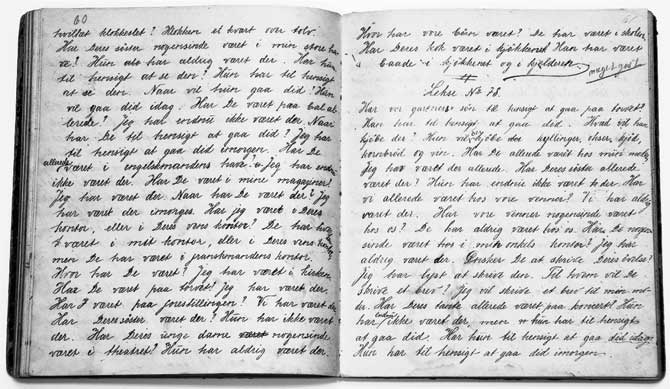 60
hvilket klokkeslet? Klokken et kvart over tolv.
Har Deres søster nogensinde været i min store ha-
ve? Hun har aldrig været der. Har hun
til hensigt at se den? Hun har til hensigt
at se den. Naar vil hun gaa did? Hun
vil gaa did idag. Har De været paa bal al-
lerede? Jeg har endnu ikke været der. Naar
har De til hensigt at gaa did? Jeg har
til hensigt at gaa did imorgen. Har De
allerede været i engelskmandens have? Jeg har endnu
ikke været der. Har De været i mine magaziner?
Jeg har været der. Naar har De været der? Jeg
har været der imorges. Har jeg været i Deres
kontor, eller i Deres vens kontor? De har
været i mit kontor, eller i Deres vens
men De har været i franskmandens kontor.
Hvor har De været? Jeg har været i kirken.
Har De været paa torvet? Jeg har været der.
Har I været paa forestillingen? Vi har været der.
Har Deres søster været der? Hun har ikke været der.
Har Deres unge dame været nogensinde
været i theatret? Hun har aldrig været der.
61
Hvor har vore børn været? De har været i skolen.
Har Deres kok været i kjøkkenet? Han har været
baade i kjøkkenet og i kjælderen.
meget godt
Lekse No 75.
Har vor gartners søn til hensigt at gaa paa torvet?
Han har til hensigt at gaa did. Hvad vil han
kjøbe der? Han vil kjøbe der kyllinger, okser, kjød,
kornbrød og vin. Har De allerede været hos min
Jeg har været der allerede. Har Deres søster allerede
været der? Hun har endnu ikke været der. Har
vi allerede været hos vore venner? Vi har aldrig
været der. Har vore venner nogensinde været
hos os? De har aldrig været hos os. Har De nogen-
sinde været hos i min onkels kontor? Jeg har
aldrig været der. Ønsker De at skrive Deres øvelse?
Jeg har lyst at skrive den. Til hvem vil De
skrive et brev? Jeg vil skrive et brev til min mo-
der. Har Deres tante allerede været paa koncert? Hun
har endnu ikke været der, men hun har til hensigt
at gaa did. Har hun til hensigt at gaa did idag?
Hun har til hensigt at gaa did imorgen.